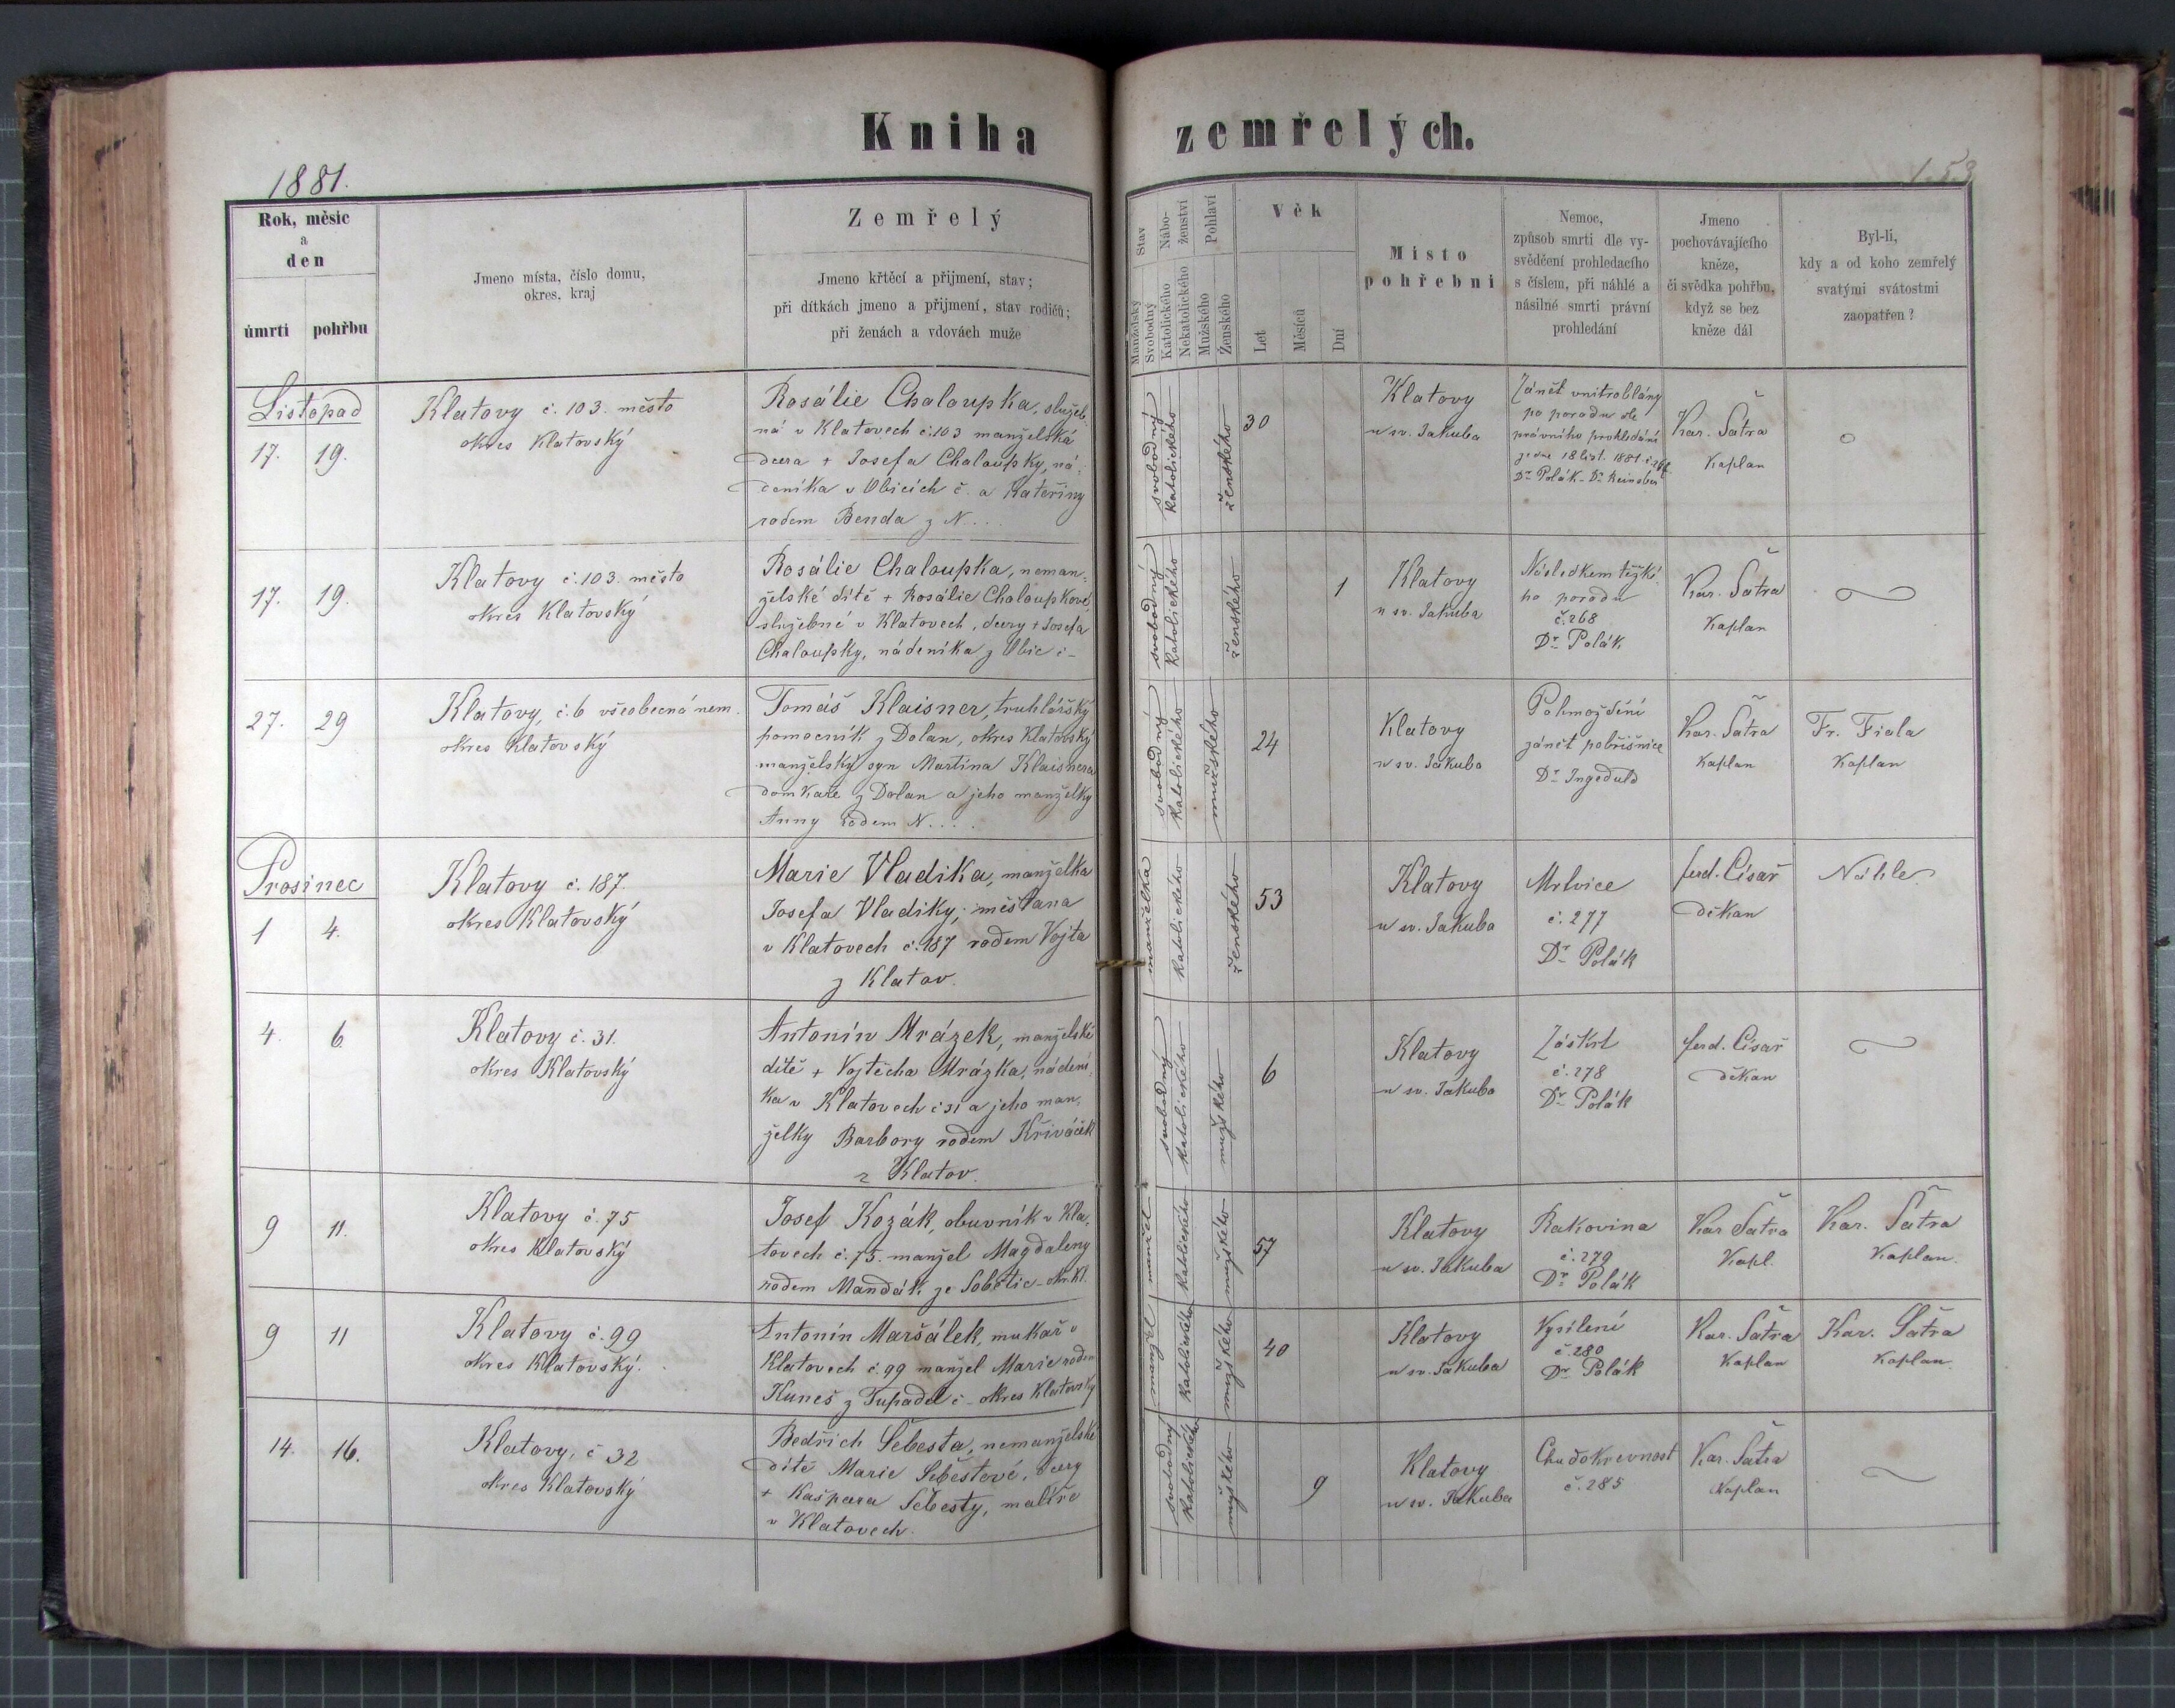 Kniha zemřelých.
1881.
153
Rok, měsíc
a
den
úmrtí
pohřbu
Jmeno místa, číslo domu,
okres, kraj
Zemřelý
Jmeno křtěcí a přijmení, stav;
při dítkách jmeno a přijmení, stav rodičů;
při ženách a vdovách muže
Stav
Manželský
Svobodný
Nábo-
ženství
Katolického
Nekatolického
Pohlaví
Mužského
Ženského
Věk
Let
Měsíců
Dní
Místo
pohřební
Nemoc,
způsob smrti dle vy-
svědčení prohledacího
s číslem, při náhlé a
násilné smrti právní
prohledání
Jmeno
pochovávajícího
kněze,
či svědka pohřbu,
když se bez
kněze dál
Byl-li,
kdy a od koho zemřelý
svatými svátostmi
zaopatřen?
Listopad
17. 19.
Klatovy č. 103. město
okres Klatovský
Rosálie Chaloupka, služeb-
ná v Klatovech č. 103 manželská
dcera + Josefa Chaloupky, ná-
deníka v Obicích č. a Kateřiny
rodem Benda z N...
svobodný
katolického
ženského
30
Klatovy
u sv. Jakuba
Zánět vnitroblány
po porodu dle
právního prohledání
ze dne 18 list. 1881
Dr Polák - Dr
Kar. Šatra
Kaplan
o
17. 19.
Klatovy č. 103. město
okres Klatovský
Rosálie Chaloupka, neman-
želské dítě + Rosálie Chaloupkové,
služebné v Klatovech, dcery + Josefa
Chaloupky, nádeníka z Obic č -
svobodný
katolického
ženského
1
Klatovy
u sv. Jakuba
Následkem těžké-
ho porodu
č. 268
Dr Polák
Kar. Šatra
Kaplan
27. 29
Klatovy, č. 6 všeobecná nem.
okres Klatovský
Tomáš Klaisner, truhlářský
pomocník z Dolan, okres Klatovský
manželský syn Martina Klaisnera
domkáře z Dolan a jeho manželky
Anny rodem N....
svobodný
katolického
mužského
24
Klatovy
u sv. Jakuba
Pohmoždění
zánět pobřišnice
Dr Ingeduld
Kar. Šatra
Kaplan
Fr. Fiala
Kaplan
Prosinec
1 4.
Klatovy č. 187.
okres Klatovský
Marie Vladika, manželka
Josefa Vladiky, měšťana
v Klatovech č. 187 rodem Vojta
z Klatov.
manželka
katolického
ženského
53
Klatovy
u sv. Jakuba
Mrtvice
č. 277
Dr Polák
ferd. Císař
děkan
Náhle
4. 6
Klatovy č. 31.
okres Klatovský
Antonín Mrázek, manželské
dítě + Vojtěcha Mrázka, nádení-
ka v Klatovech č 31 a jeho man-
želky Barbory rodem Křiváček
z Klatov.
svobodný
katolického
mužského
6
Klatovy
u sv. Jakuba
Záškrt
č. 278
Dr Polák
ferd. Císař
děkan
9 11.
Klatovy č. 75
okres Klatovský
Josef Kozák, obuvník v Kla-
tovech č. 75. manžel Magdaleny
rodem Mandák ze Sobětic - okr. Kl.
manžel
katolického
mužského
57
Klatovy
u sv. Jakuba
Rakovina
č. 279
Dr Polák
Kar Šatra
Kapl.
Kar. Šatra
Kaplan.
9 11
Klatovy č. 99
okres Klatovský.
Antonín Maršálek, mukař v
Klatovech č. 99 manžel Marie rodem
Kuneš z Tupadel č - okres Klatovský
manžel
katolického
mužského
40
Klatovy
u sv. Jakuba
Vysílení
č. 280
Dr Polák
Kar. Šatra
Kaplan
Kar. Šatra
Kaplan
14. 16.
Klatovy, č 32
okres Klatovský
Bedřich Šebesta, nemanželské
dítě Marie Šebestové, dcery
+ Kašpara Šebesty, malíře
v Klatovech.
svobodný
katolického
mužského
9
Klatovy
u sv. Jakuba
Chudokrevnost
č. 285
Kar. Šatra
Kaplan